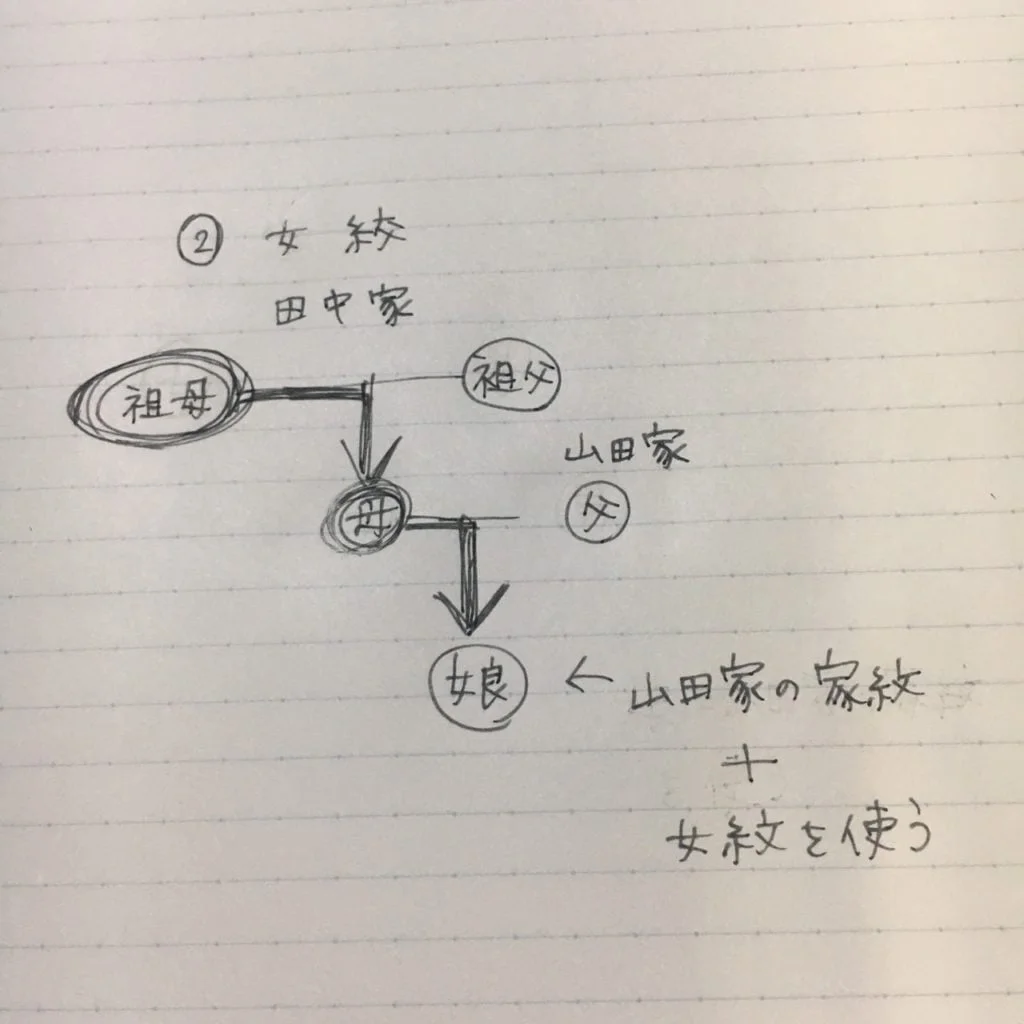 ② 女紋
田中家
祖母
祖父
山田家
母
父
娘
← 山田家の家紋
+
女紋を使う